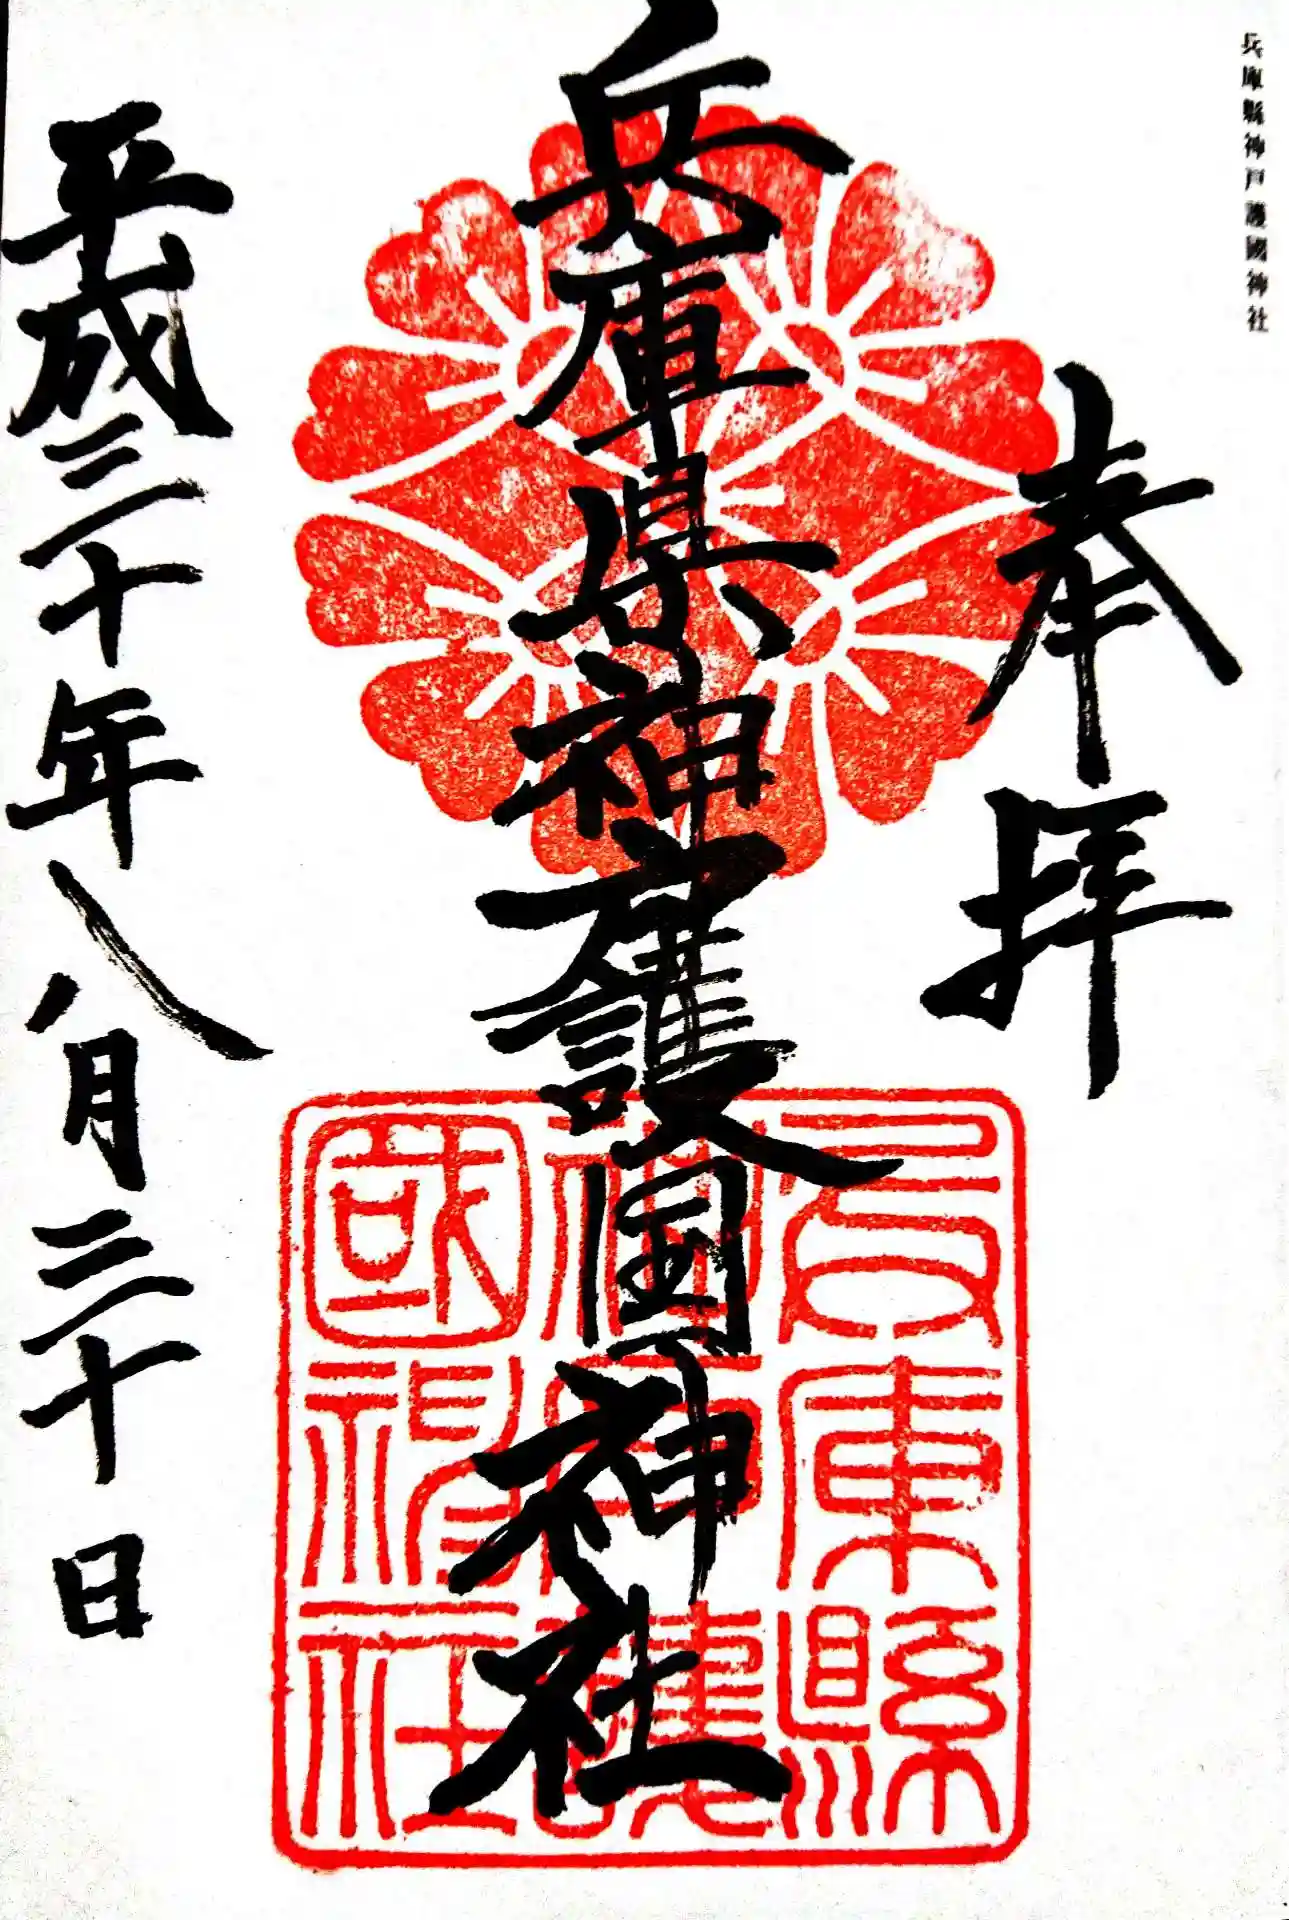 兵庫縣神戸護國神社
奉拝
兵庫県神戸護国神社
兵庫縣
神戸護
國神社
平成三十年八月三十日